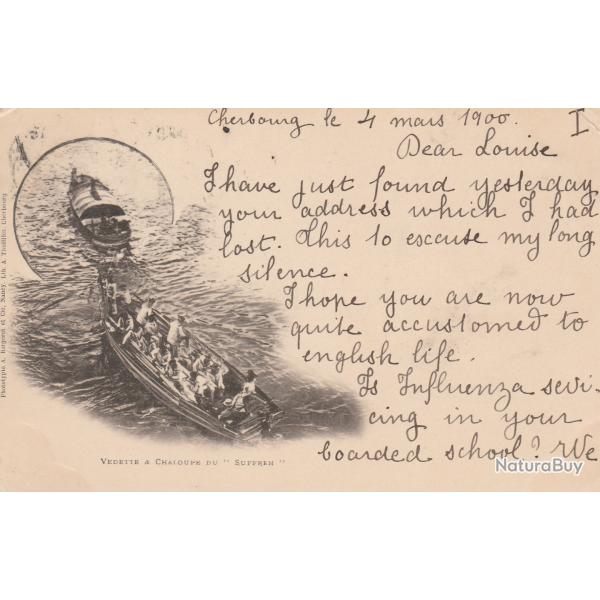 Cherbourg le 4 mars 1900. I
Dear Louise
I have just found yesterday
your address which I had
lost. This to escuse my long
silence.
I hope you are now
quite accustomed to
english life.
Is Influenza sevi-
cing in your
boarded school? We
VEDETTE & CHALOUPE DU "SUFFREN"
Phototypie A. Bergeret et Cie, Nancy. Lib. A.
Cherbourg
NaturaBuy